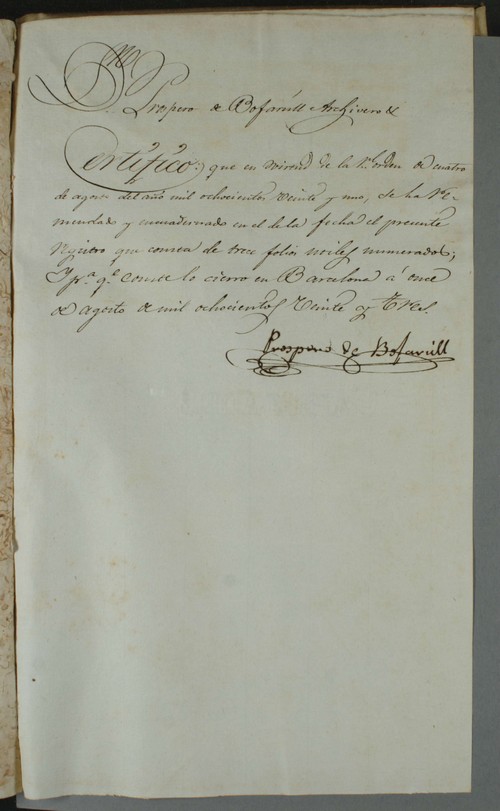 Dn
Prospero de Bofarull Archivero &
Certifico: que en virtud de la Rl. orden de cuatro
de agosto del año mil ochocientos veinte y uno, se ha Re-
mendado y encuadernado en el de la fecha el presente
Registro que consta de trece folios utiles numerados;
Y pa. qe. conste lo cierro en Barcelona a once
de agosto de mil ochocientos veinte y tres.
Prospero de Bofarull